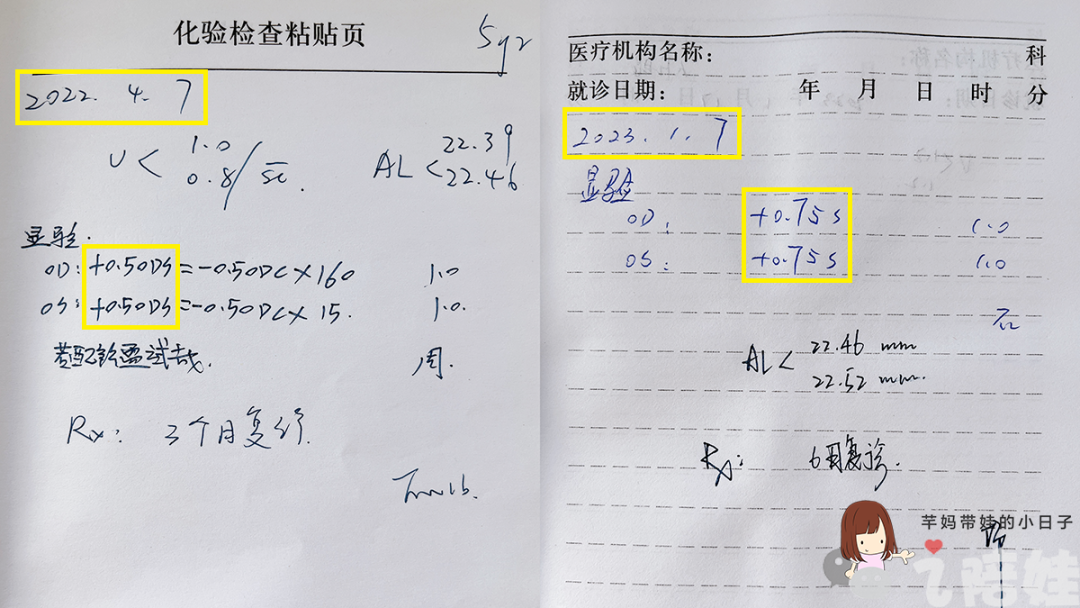 化验检查粘贴页
5yr
2022. 4. 7
V < 1.0
0.8 / sc.
AL < 22.39
22.46
显验.
OD: +0.50DS = -0.50DC × 160 1.0
OS: +0.50DS = -0.50DC × 15. 1.0.
若配镜需试戴. 周.
Rx: 3个月复诊.
医疗机构名称: 科
就诊日期: 年 月 日 时 分
2023. 1. 7
显验
OD: +0.75S 1.0
OS: +0.75S 1.0
AL < 22.46 mm
22.52 mm.
Rx: 6月复诊.
芊妈带娃的小日子
飞陪娃